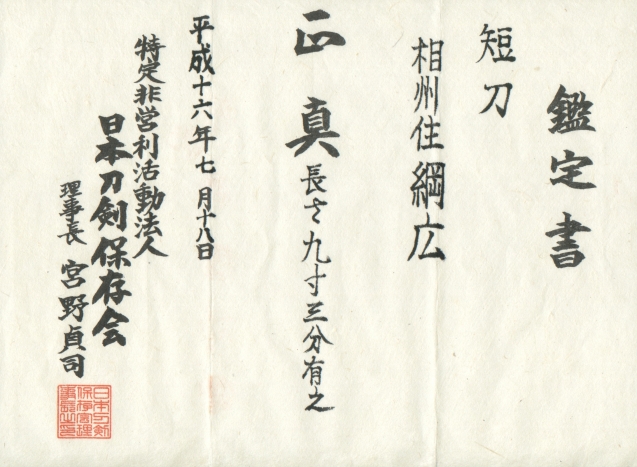 鑑定書
短刀
相州住綱広
正真
長さ九寸三分有之
平成十六年七月十八日
特定非営利活動法人
日本刀剣保存会
理事長 宮野貞司